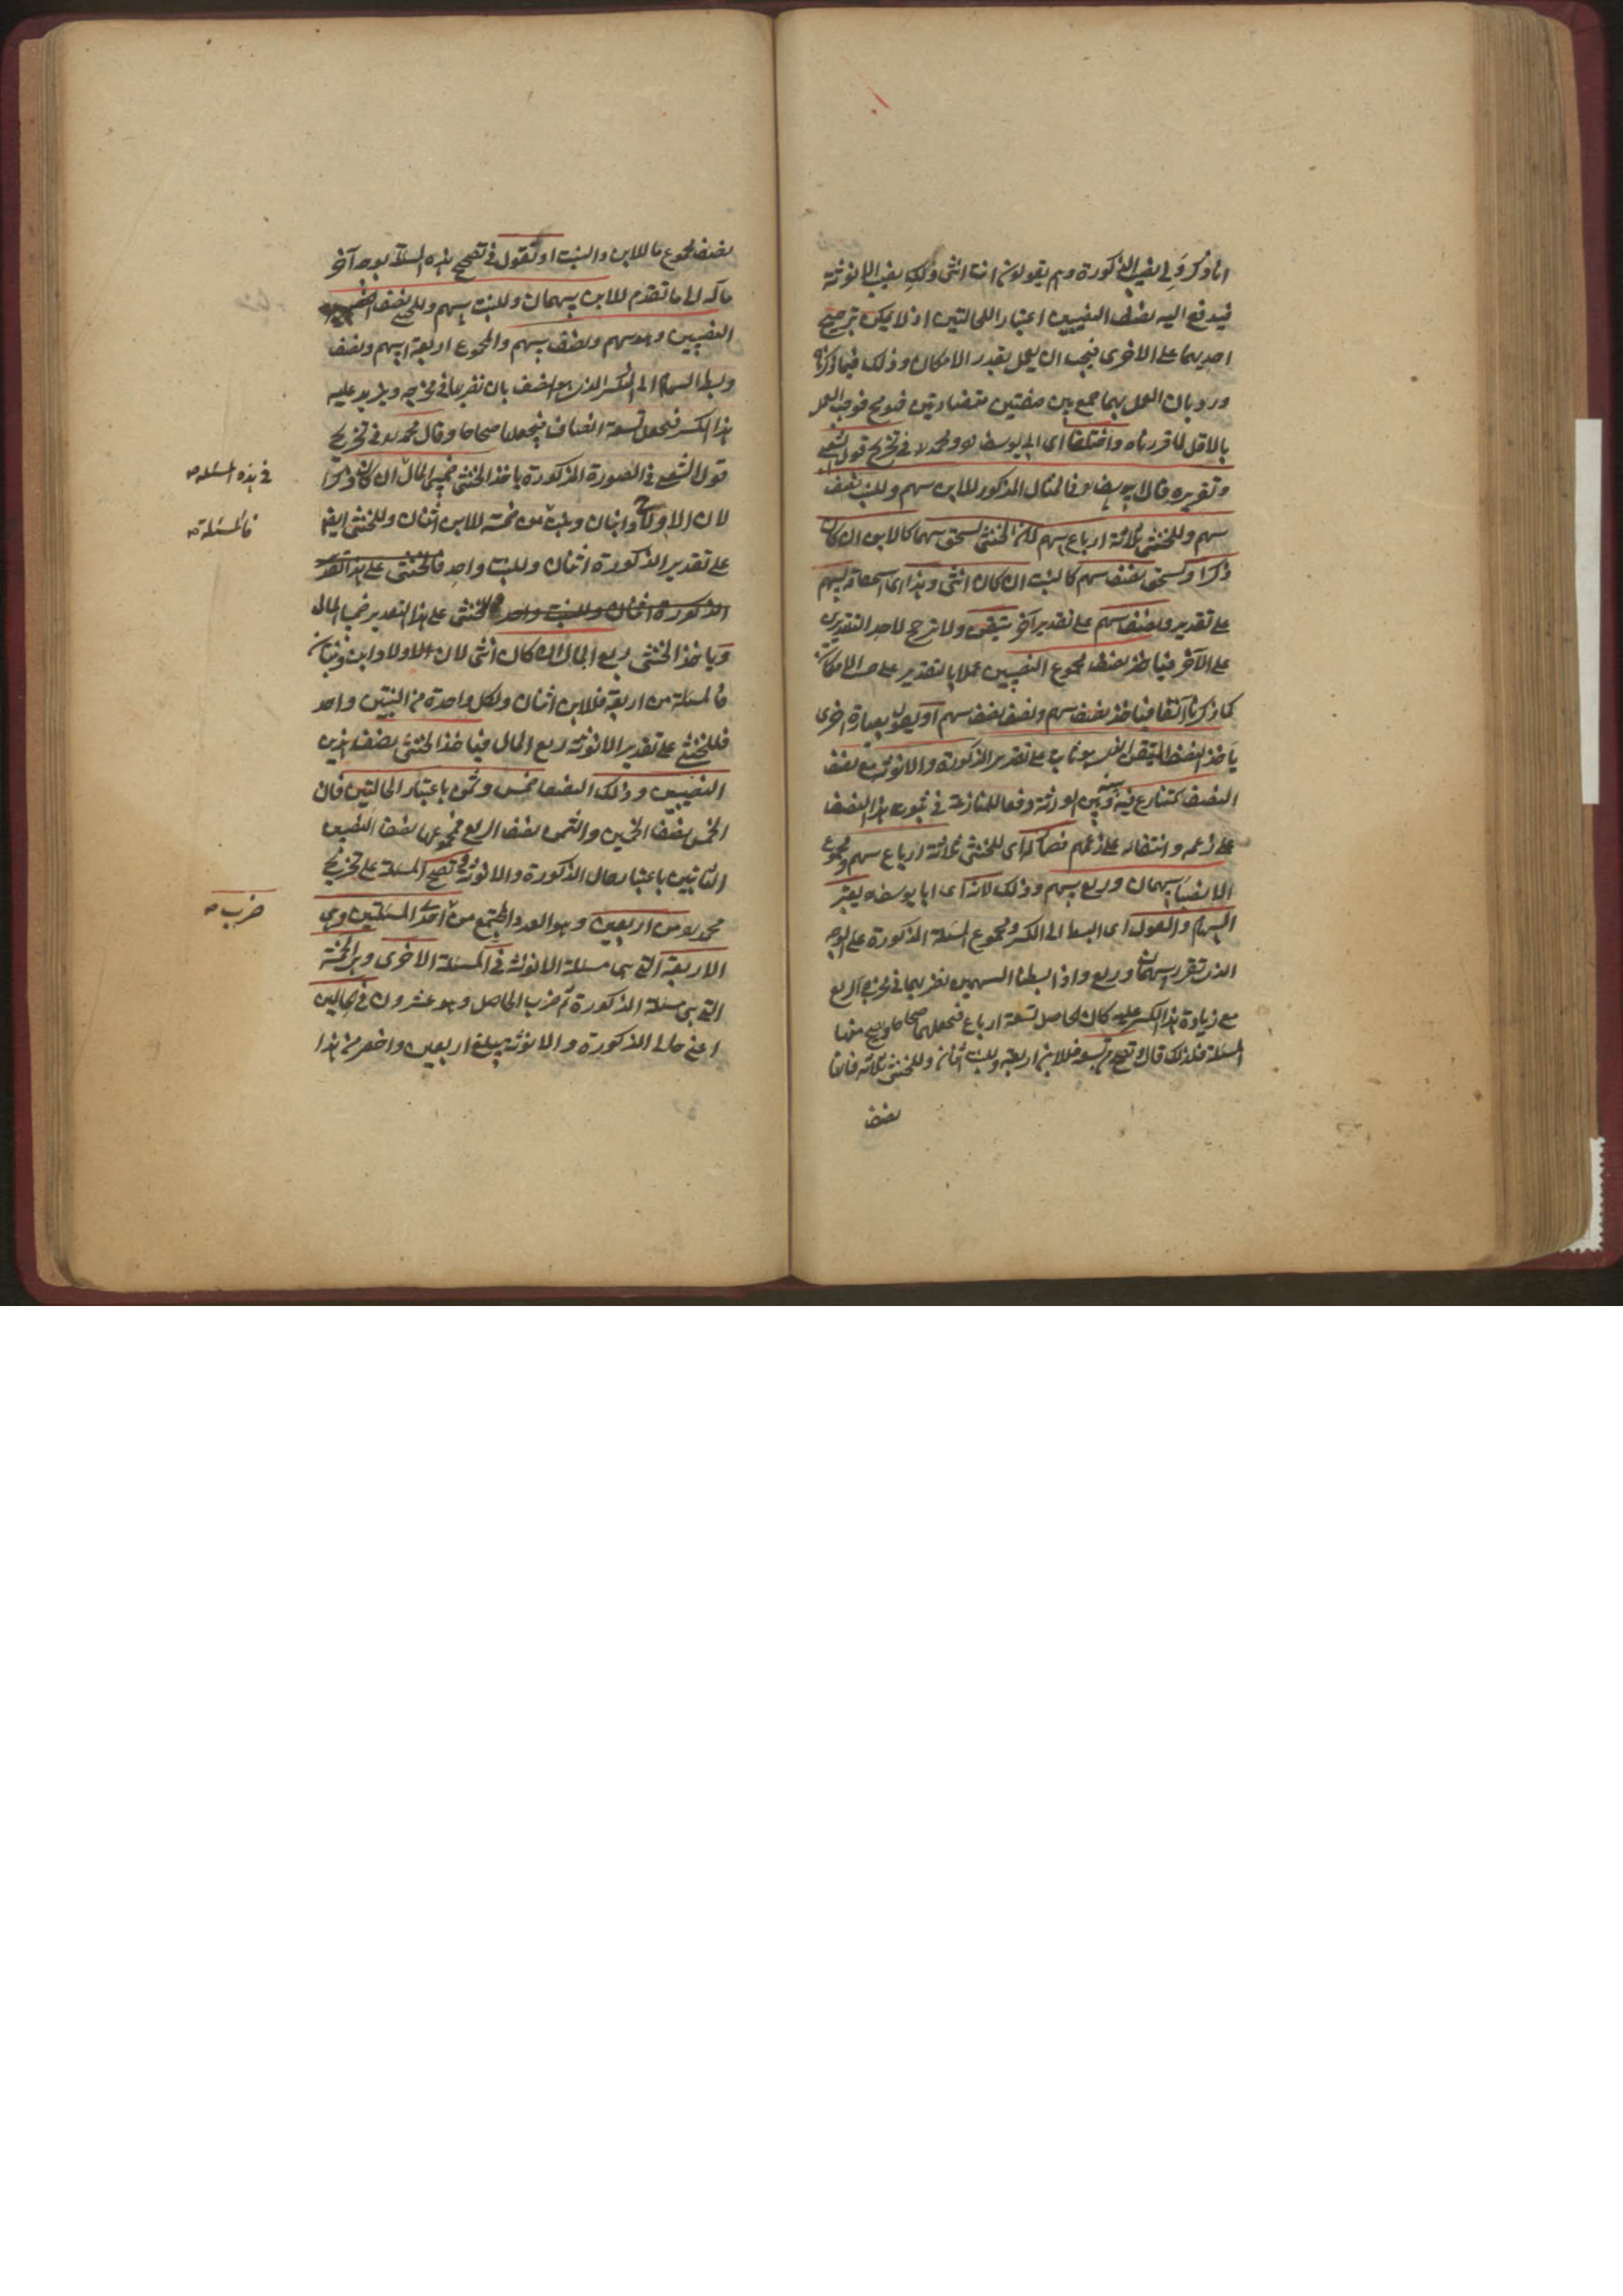 انا ذكر ولي نصيب الذكورة وهم يقولون انت انثى ولك نصيب الانوثة
فيدفع اليه نصف النصيبين اعتبارا للحالتين اذ لا يمكن ترجيح
احديهما على الاخرى فيجب ان يعمل بقدر الامكان وذلك فيما ذكرناه
ورد بان العمل بهما جمع بين صفتين متضادتين فوجب العمل
بالاقل لما قررناه واختلفا اى ابو يوسف ره ومحمد ره فى تخريج قول الشعبى
وتقريره قال ابو يوسف ره فى المثال المذكور للابن سهم وللبنت نصف
سهم وللخنثى ثلاثة ارباع سهم لان الخنثى يستحق سهما كالابن ان كان
ذكرا ويستحق نصف سهم كالبنت ان كان انثى وهذا اى استحقاقه لسهم
على تقدير ونصف سهم على تقدير آخر متيقن ولا ترجح لاحد التقديرين
على الآخر فياخذ نصف مجموع النصيبين عملا بالتقدير على حسب الامكان
كما ذكرنا آنفا فياخذ نصف سهم ونصف نصف سهم او يقول بعبارة اخرى
ياخذ النصف المتيقن الذى هو ثابت على تقدير الذكورة والانوثة مع نصف
النصف المتنازع فيه بينه وبين الورثة دفعا للمنازعة فى ثبوت هذا النصف
على زعمه وانتفائه على زعمهم فصار له اى للخنثى ثلاثة ارباع سهم ومجموع
الانصباء سهمان وربع سهم وذلك لانه اى ابا يوسف ره يعتبر
السهام والعول اى البسط الى الكسر ومجموع المسئلة المذكورة على الوجه
الذى تقرر سهمان وربع واذا بسطنا السهمين بضربهما فى مخرج الربع
مع زيادة هذا الكسر عليه كان الحاصل تسعة ارباع فنجعلها صحاحا ويصح منها
المسئلة فلذلك قال وتصح من تسعة فللابن اربعة وللبنت اثنان وللخنثى ثلاثة فانها
نصف
نصف مجموع ما للابن والبنت او نقول فى تصحيح هذه المسئلة بوجه آخر
مآله الى ما تقدم للابن سهمان وللبنت سهم وللخنثى نصف
النصيبين وهو سهم ونصف سهم والمجموع اربعة اسهم ونصف
وبسط السهام الى الكسر الذى هو النصف بان نضربها فى مخرجه ونزيد عليه
هذا الكسر فنحصل تسعة انصاف فنجعلها صحاحا وقال محمد ره فى تخريج
قول الشعبى فى الصورة المذكورة ياخذ الخنثى خمسى المال ان كان ذكرا
فى هذه المسئلة صح
لان الاولاد ح ابنان وبنت من خمسة للابن اثنان وللخنثى ايضا
فالمسئلة صح
على تقدير الذكورة اثنان وللبنت واحد فالخنثى على هذا التقدير
الذكورة اثنان وللبنت واحد فالخنثى على هذا التقدير خمسا المال
وياخذ الخنثى ربع المال ان كان انثى لان الاولاد ابن وبنتان
فالمسئلة من اربعة فللابن اثنان ولكل واحدة من البنتين واحد
فللخنثى على تقدير الانوثة ربع المال فياخذ الخنثى نصف هذين
النصيبين وذلك النصف خمس وثمن باعتبار الحالتين فان
الخمس نصف الخمسين والثمن نصف الربع فمجموعهما نصف النصيبين
الثابتين باعتبار حال الذكورة والانوثة وتصح المسئلة على تخريج
محمد ره من اربعين وهو العدد المجتمع من احدى المسئلتين وهى
ضرب صح
الاربعة التى هى مسئلة الانوثة فى المسئلة الاخرى وهى الخمسة
التى هى مسئلة الذكورة ثم ضرب الحاصل وهو عشرون فى الحالتين
اعنى حالى الذكورة والانوثة يبلغ اربعين واخصر من هذا